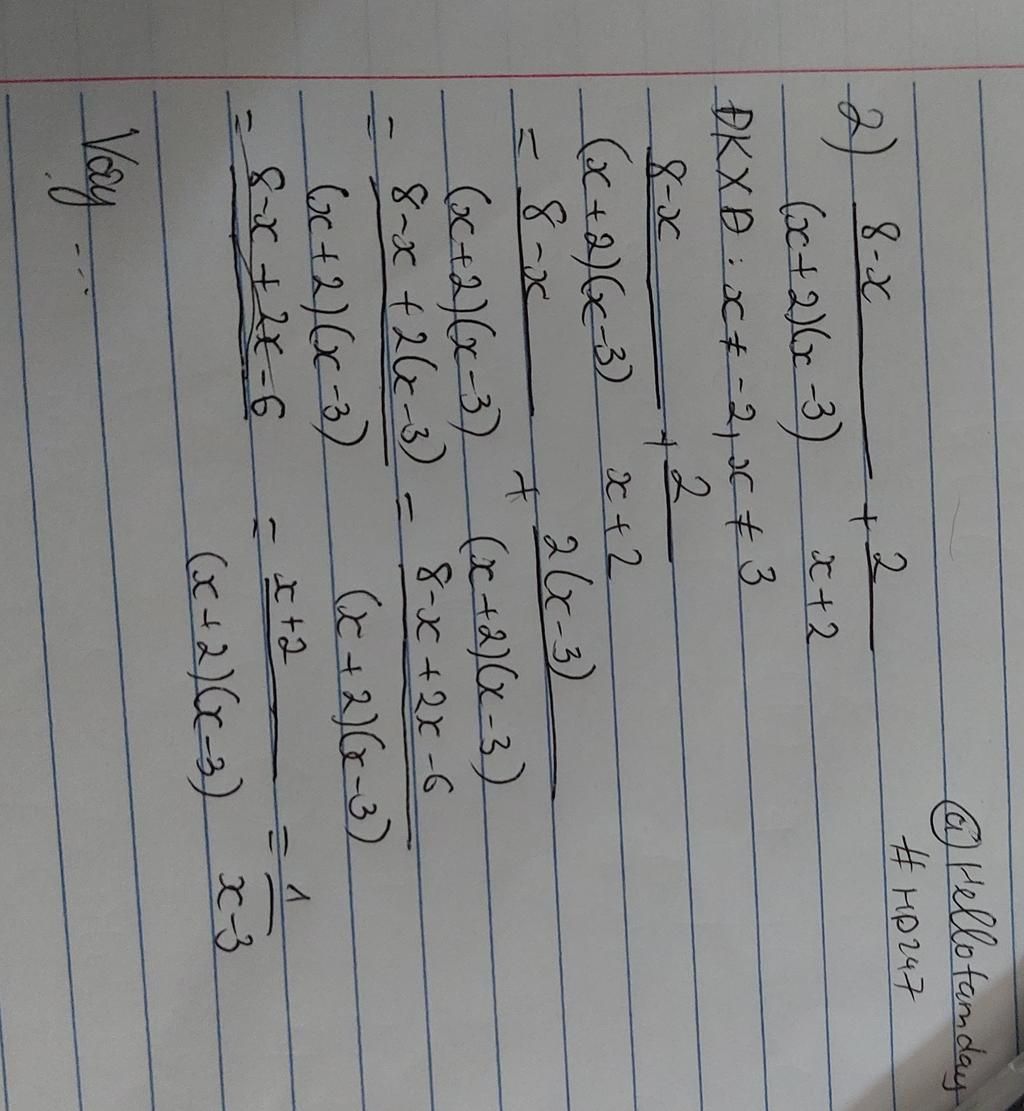 @Hellotamday
#HD247
2) 8-x / (x+2)(x-3) + 2 / x+2
ĐKXĐ: x ≠ -2, x ≠ 3
8-x / (x+2)(x-3) + 2 / x+2
= 8-x / (x+2)(x-3) + 2(x-3) / (x+2)(x-3)
= 8-x+2(x-3) / (x+2)(x-3) = 8-x+2x-6 / (x+2)(x-3)
= 8-x+2x-6 = x+2 / (x+2)(x-3) = 1 / x-3
Vậy ...